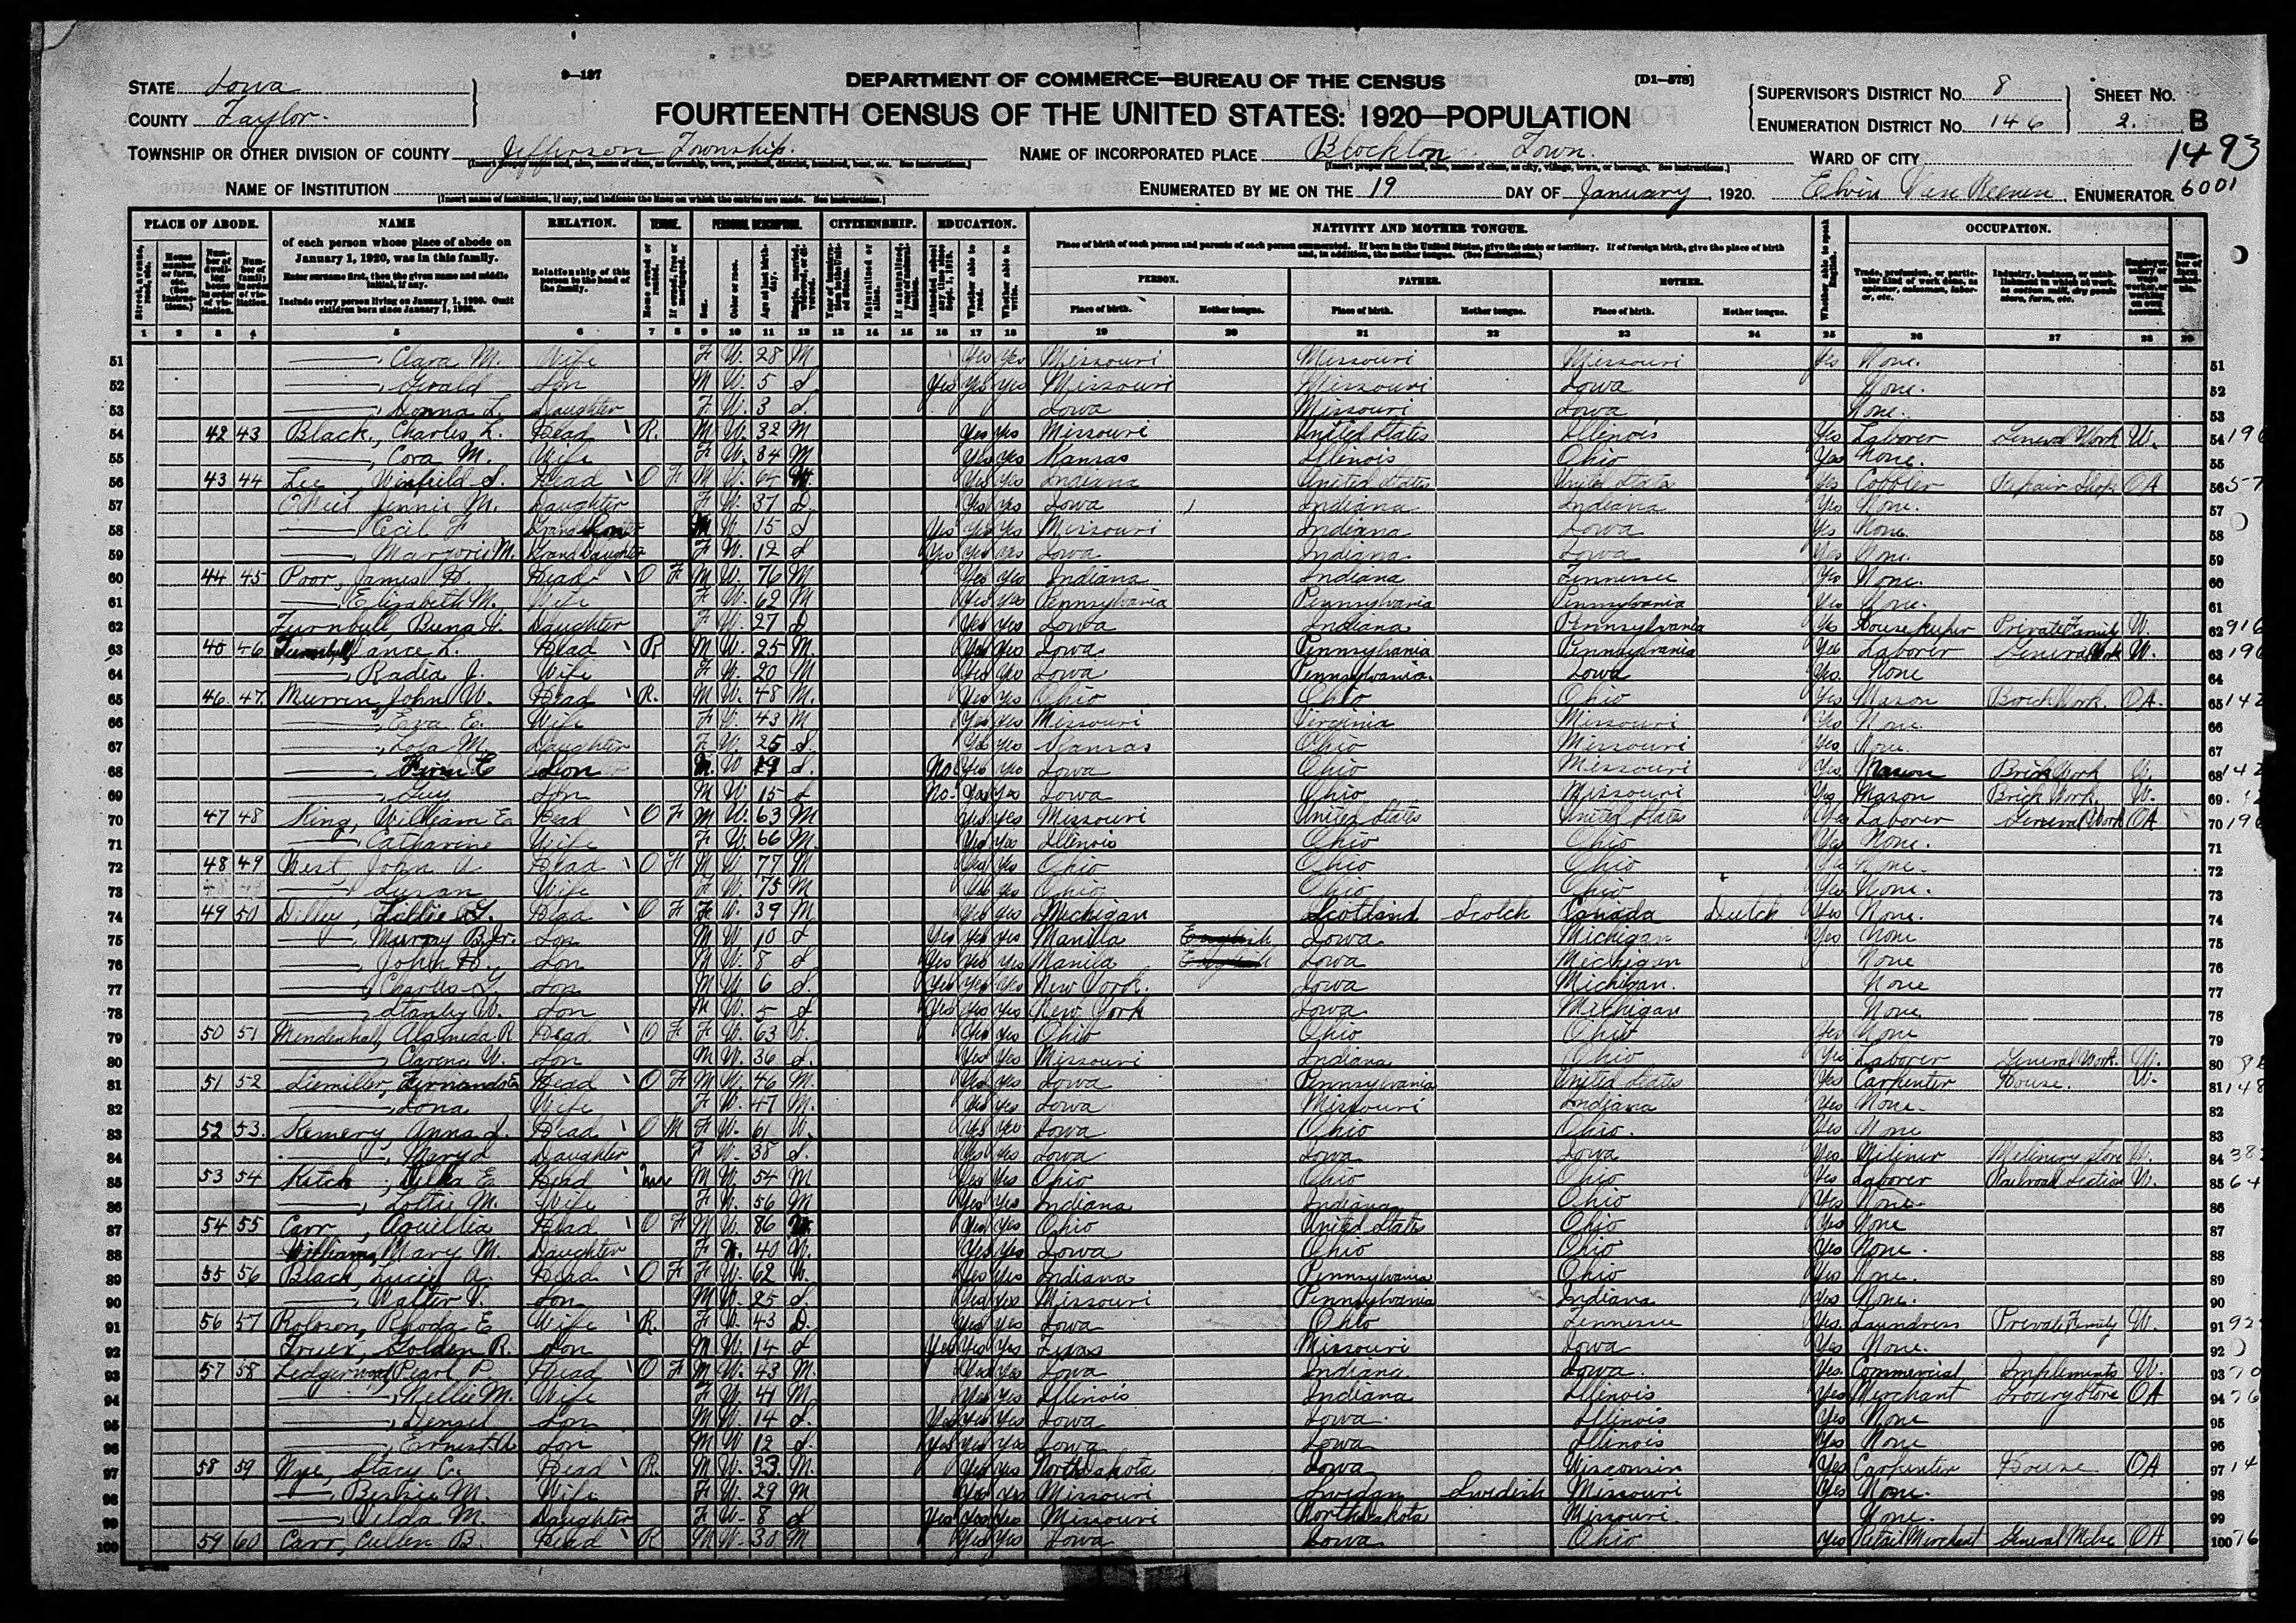 9—137
DEPARTMENT OF COMMERCE—BUREAU OF THE CENSUS
[D1—578]
STATE Iowa
COUNTY Taylor.
FOURTEENTH CENSUS OF THE UNITED STATES: 1920—POPULATION
SUPERVISOR'S DISTRICT No. 8 SHEET No.
ENUMERATION DISTRICT No. 146 2. B
1493
TOWNSHIP OR OTHER DIVISION OF COUNTY Jefferson Township. NAME OF INCORPORATED PLACE Blockton Town. WARD OF CITY
NAME OF INSTITUTION ENUMERATED BY ME ON THE 19 DAY OF January, 1920. Elvin Van ENUMERATOR. 6001
PLACE OF ABODE. NAME RELATION. TENURE. PERSONAL DESCRIPTION. CITIZENSHIP. EDUCATION. NATIVITY AND MOTHER TONGUE. OCCUPATION.
of each person whose place of abode on January 1, 1920, was in this family.
Enter surname first, then the given name and middle initial, if any.
Include every person living on January 1, 1920. Omit children born since January 1, 1920.
Relationship of this person to the head of the family.
Place of birth of each person and parents of each person enumerated. If born in the United States, give the state or territory. If of foreign birth, give the place of birth and, in addition, the mother tongue. (See Instructions.)
PERSON. FATHER. MOTHER.
Place of birth. Mother tongue. Place of birth. Mother tongue. Place of birth. Mother tongue.
1 2 3 4 5 6 7 8 9 10 11 12 13 14 15 16 17 18 19 20 21 22 23 24 25 26 27 28 29
51 ——, Clara M. Wife F W. 28 M Yes Yes Missouri Missouri Missouri Yes None. 51
52 ——, Gerald Son M W. 5 S Yes Yes Yes Missouri Missouri Iowa None. 52
53 ——, Donna L. Daughter F W. 3 S. Iowa Missouri Iowa None. 53
54 42 43 Black, Charles L. Head R. M W. 32 M Yes Yes Missouri United States Illinois Yes Laborer General Work W. 54 196
55 ——, Cora M. Wife F W. 34 M Yes Yes Kansas Illinois Ohio Yes None. 55
56 43 44 Lee, Winfield S. Head O F M W. 64 Yes Yes Indiana United States United States Yes Cobbler Repair Shop OA 56 57
57 ONeil Jennie M. Daughter F W. 37 D Yes Yes Iowa Indiana Indiana Yes None. 57
58 —— Cecil F M W 15 S Yes Yes Yes Missouri Indiana Iowa Yes None. 58
59 ——, Marjorie M. Grand Daughter F W. 12 S Yes Yes Yes Iowa Indiana Iowa Yes None. 59
60 44 45 Poor, James H. Head O F M W. 76 M Yes Yes Indiana Indiana Tennessee Yes None. 60
61 ——, Elizabeth M. Wife F W. 62 M Yes Yes Pennsylvania Pennsylvania Pennsylvania Yes None. 61
62 Turnbull, Buna H. Daughter F W. 27 D Yes Yes Iowa Indiana Pennsylvania Yes Housekeeper Private Family W. 62 916
63 46 Vance L. Head R M W. 25 M. Yes Yes Iowa. Pennsylvania Pennsylvania Yes Laborer General Work W. 63 196
64 ——, Radia J. Wife F W. 20 M Yes Yes Iowa Pennsylvania Iowa Yes. None 64
65 46. 47. Murren, John W. Head R. M W. 48 M. Yes Yes Ohio Ohio Ohio Yes Mason Brick Work. OA. 65 142
66 ——, Eva E. Wife F W. 43 M Yes Yes Missouri Virginia Missouri Yes None. 66
67 ——, Lola M. Daughter F W. 25 S. Yes Yes Kansas Ohio Missouri Yes. None. 67
68 Son M. W 19 S. No Yes Yes Iowa Ohio Missouri Yes. Mason Brick Work W. 68 142
69 ——, Guy Son M W 15 S No. Yes Yes Iowa Ohio Missouri Yes, Mason Brick Work. W. 69
70 47 48 King, William E. Head O F M W. 63 M Yes Yes Missouri United States United States Yes Laborer General Work OA 70 196
71 ——, Catharine Wife F W. 66 M Yes Yes Illinois Ohio Ohio Yes None. 71
72 48 49 West, John A Head O F M W 77 M Yes Yes Ohio Ohio Ohio Yes None. 72
73 ——, Susan Wife F W. 75 M Yes Yes Ohio Ohio Ohio Yes None. 73
74 49 50 Dilley, Lillie G. Head O F F W. 39 M Yes Yes Michigan Scotland Scotch Canada Dutch Yes None. 74
75 ——, Murray B. Jr. Son M W. 10 S Yes Yes Yes Manilla English Iowa Michigan Yes None 75
76 ——, John H. Son M W. 8 S Yes Yes Yes Manila English Iowa Michigan None 76
77 ——, Charles G Son M W. 6 S. Yes Yes Yes New York. Iowa Michigan. None 77
78 ——, Stanley W. Son M W. 5 S Yes Yes Yes New York Iowa Michigan None 78
79 50 51 Mendenhall, Alameda R Head O F F W. 63 Yes Yes Ohio Ohio Ohio Yes None 79
80 ——, Clarence W. Son M W. 36 S. Yes Yes Missouri Indiana Ohio Yes Laborer General Work. W. 80
81 51 52 Liemiller, Fernando E Head O F M W. 46 M. Yes Yes Iowa Pennsylvania United States Yes Carpenter House. W. 81 148
82 ——, Lona Wife F W. 47 M. Yes Yes Iowa Missouri Indiana Yes None. 82
83 52 53. Kemery, Anna J. Head O M F W. 61 Yes Yes Iowa Ohio Ohio. Yes None 83
84 ——, Mary L Daughter F W. 38 S. Yes Yes Iowa Iowa Iowa Yes Miliner Milinery Store W. 84 38
85 53 54 Ketch, E Head M W. 54 M Yes Yes Ohio Ohio Ohio Yes Laborer Railroad Section W. 85 64
86 ——, Lottie M. Wife F W. 56 M Yes Yes Indiana Indiana Ohio Yes None. 86
87 54 55 Carr, Aquillia Head O F M W. 86 Yes Yes Ohio United States Ohio Yes None 87
88 Williams, Mary M. Daughter F W. 40 Yes Yes Iowa Ohio Ohio Yes None. 88
89 55 56 Black, Lucie A. Head O F F W. 62 W. Yes Yes Indiana Pennsylvania Ohio Yes None. 89
90 ——, Walter V. Son M W. 25 S. Yes Yes Missouri Pennsylvania Indiana Yes None. 90
91 56 57 Roloson, Rhoda E Wife R. F W. 43 D. Yes Yes Iowa Ohio Tennessee Yes. Laundress Private Family W. 91 92
92 Golden R. Son M W. 14 S Yes Yes Yes Texas Missouri Iowa Yes None. 92
93 57 58 Ledgerwood, Pearl P. Head O F M W. 43 M. Yes Yes Iowa Indiana Iowa. Yes. Commercial Implements W. 93 70
94 ——, Nellie M. Wife F W. 41 M. Yes Yes Illinois Indiana Illinois Yes Merchant Grocery Store OA 94 76
95 ——, Denzel Son M W. 14 S. Yes Yes Yes Iowa Iowa. Illinois Yes None 95
96 ——, Ernest A Son M W 12 S. Yes Yes Yes Iowa Iowa Illinois Yes None 96
97 58 59 Nye, Stacy C. Head R. M W. 33. M. Yes Yes North Dakota Iowa Wisconsin Yes Carpenter House OA 97 14
98 ——, M. Wife F W. 29 M Yes Yes Missouri Swedan Swedish Missouri Yes None. 98
99 ——, Velda M. Daughter F W. 8 S Yes Yes Yes Missouri North Dakota Missouri. None. 99
100 59 60 Carr, Cullen B. Head R M W. 30 M Yes Yes Iowa Iowa Ohio Yes Retail Merchant General Mdse OA 100 76